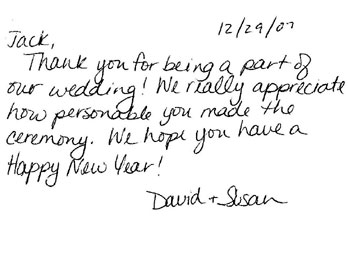 12/29/07
Jack,
Thank you for being a part of
our wedding! We really appreciate
how personable you made the
ceremony. We hope you have a
Happy New Year!
David + Susan